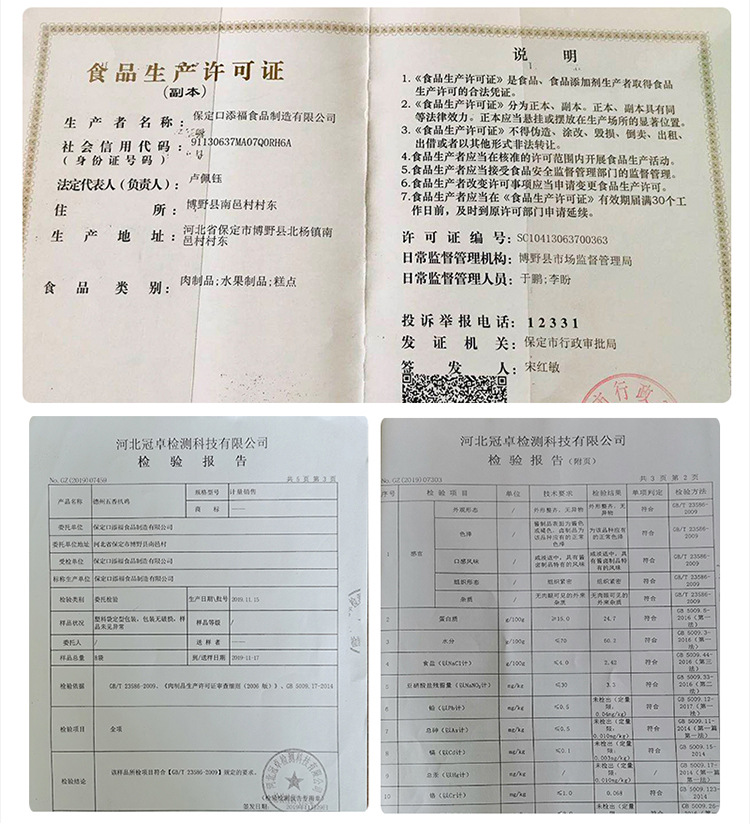 食品生产许可证
(副本)
生产者名称: 保定口添福食品制造有限公司
社会信用代码: 91130637MA07Q0RH6A
(身份证号码)
法定代表人(负责人): 卢佩钰
住所: 博野县南邑村村东
生产地址: 河北省保定市博野县北杨镇南
邑村村东
食品类别: 肉制品;水果制品;糕点
说明
1.《食品生产许可证》是食品、食品添加剂生产者取得食品
生产许可的合法凭证。
2.《食品生产许可证》分为正本、副本。正本、副本具有同
等法律效力。正本应当悬挂或摆放在生产场所的显著位置。
3.《食品生产许可证》不得伪造、涂改、毁损、倒卖、出租、
出借或者以其他形式非法转让。
4.食品生产者应当在核准的许可范围内开展食品生产活动。
5.食品生产者应当接受食品安全监督管理部门的监督管理。
6.食品生产者改变许可事项应当申请变更食品生产许可。
7.食品生产者应当在《食品生产许可证》有效期届满30个工
作日前,及时到原许可部门申请延续。
许可证编号: SC10413063700363
日常监督管理机构: 博野县市场监督管理局
日常监督管理人员: 于鹏;李盼
投诉举报电话: 12331
发证机关: 保定市行政审批局
签发人: 宋红敏
市行政
河北冠卓检测科技有限公司
检验报告
No.GZ(2019)07459 共5页 第3页
产品名称 德州五香扒鸡 规格型号 计量销售
商标 ——
委托单位 保定口添福食品制造有限公司
委托单位地址 河北省保定市博野县南邑村
受检单位 保定口添福食品制造有限公司
标称生产单位 保定口添福食品制造有限公司
检验类别 委托检验 生产日期\批号 2019.11.15
样品状况 塑料袋定型包装,包装无破损,样
品未见异常 样品等级 /
委托人 / 送样者 ——
样品总量 8袋 到/送样日期 2019-11-17
检验依据 GB/T 23586-2009、《肉制品生产许可证审查细则(2006版)》、GB 5009.17-2014
检验项目 全项
检验结论 该样品所检项目符合【GB/T 23586-2009】规定的要求。
河北冠卓检测科技有限公司
(检验检测报告专用章)
签发日期:
河北冠卓检测科技有限公司
检验报告(附页)
No.GZ(2019)07303 共3页 第2页
序号 检验项目 单位 技术要求 检验结果 单项判定 检验方法
1 感官 外观形态 / 外形整齐、无异物 外形整齐、无异物 符合 GB/T 23586-2009
色泽 / 酱制品表面为酱色或褐色,卤制品为该品种应有的正常色泽 为该品种应有的正常色泽 符合 GB/T 23586-2009
口感风味 / 咸淡适中,具有酱卤制品特有的风味 咸淡适中,具有酱卤制品特有的风味 符合 GB/T 23586-2009
组织形态 / 组织紧密 组织紧密 符合 GB/T 23586-2009
杂质 / 无肉眼可见的外来杂质 无肉眼可见的外来杂质 符合 GB/T 23586-2009
2 蛋白质 g/100g ≥15.0 24.7 符合 GB 5009.5-2016(第一法)
3 水分 g/100g ≤70 60.2 符合 GB 5009.3-2016(第一法)
4 食盐(以NaCl计) g/100g ≤4.0 2.42 符合 GB 5009.44-2016(第三法)
5 亚硝酸盐残留量(以NaNO₂计) mg/kg ≤30 3.3 符合 GB 5009.33-2016(第二法)
6 铅(以Pb计) mg/kg ≤0.5 未检出(定量限:0.04mg/kg) 符合 GB 5009.12-2017(第一法)
7 总砷(以As计) mg/kg ≤0.5 未检出(定量限:0.010mg/kg) 符合 GB 5009.11-2014(第一篇 第一法)
8 镉(以Cd计) mg/kg ≤0.1 未检出(定量限:0.003mg/kg) 符合 GB 5009.15-2014
9 总汞(以Hg计) mg/kg / 未检出(定量限:0.010mg/kg) / GB 5009.17-2014(第一篇 第一法)
10 铬(以Cr计) mg/kg ≤1.0 0.068 符合 GB 5009.123-2014
未检出(定量